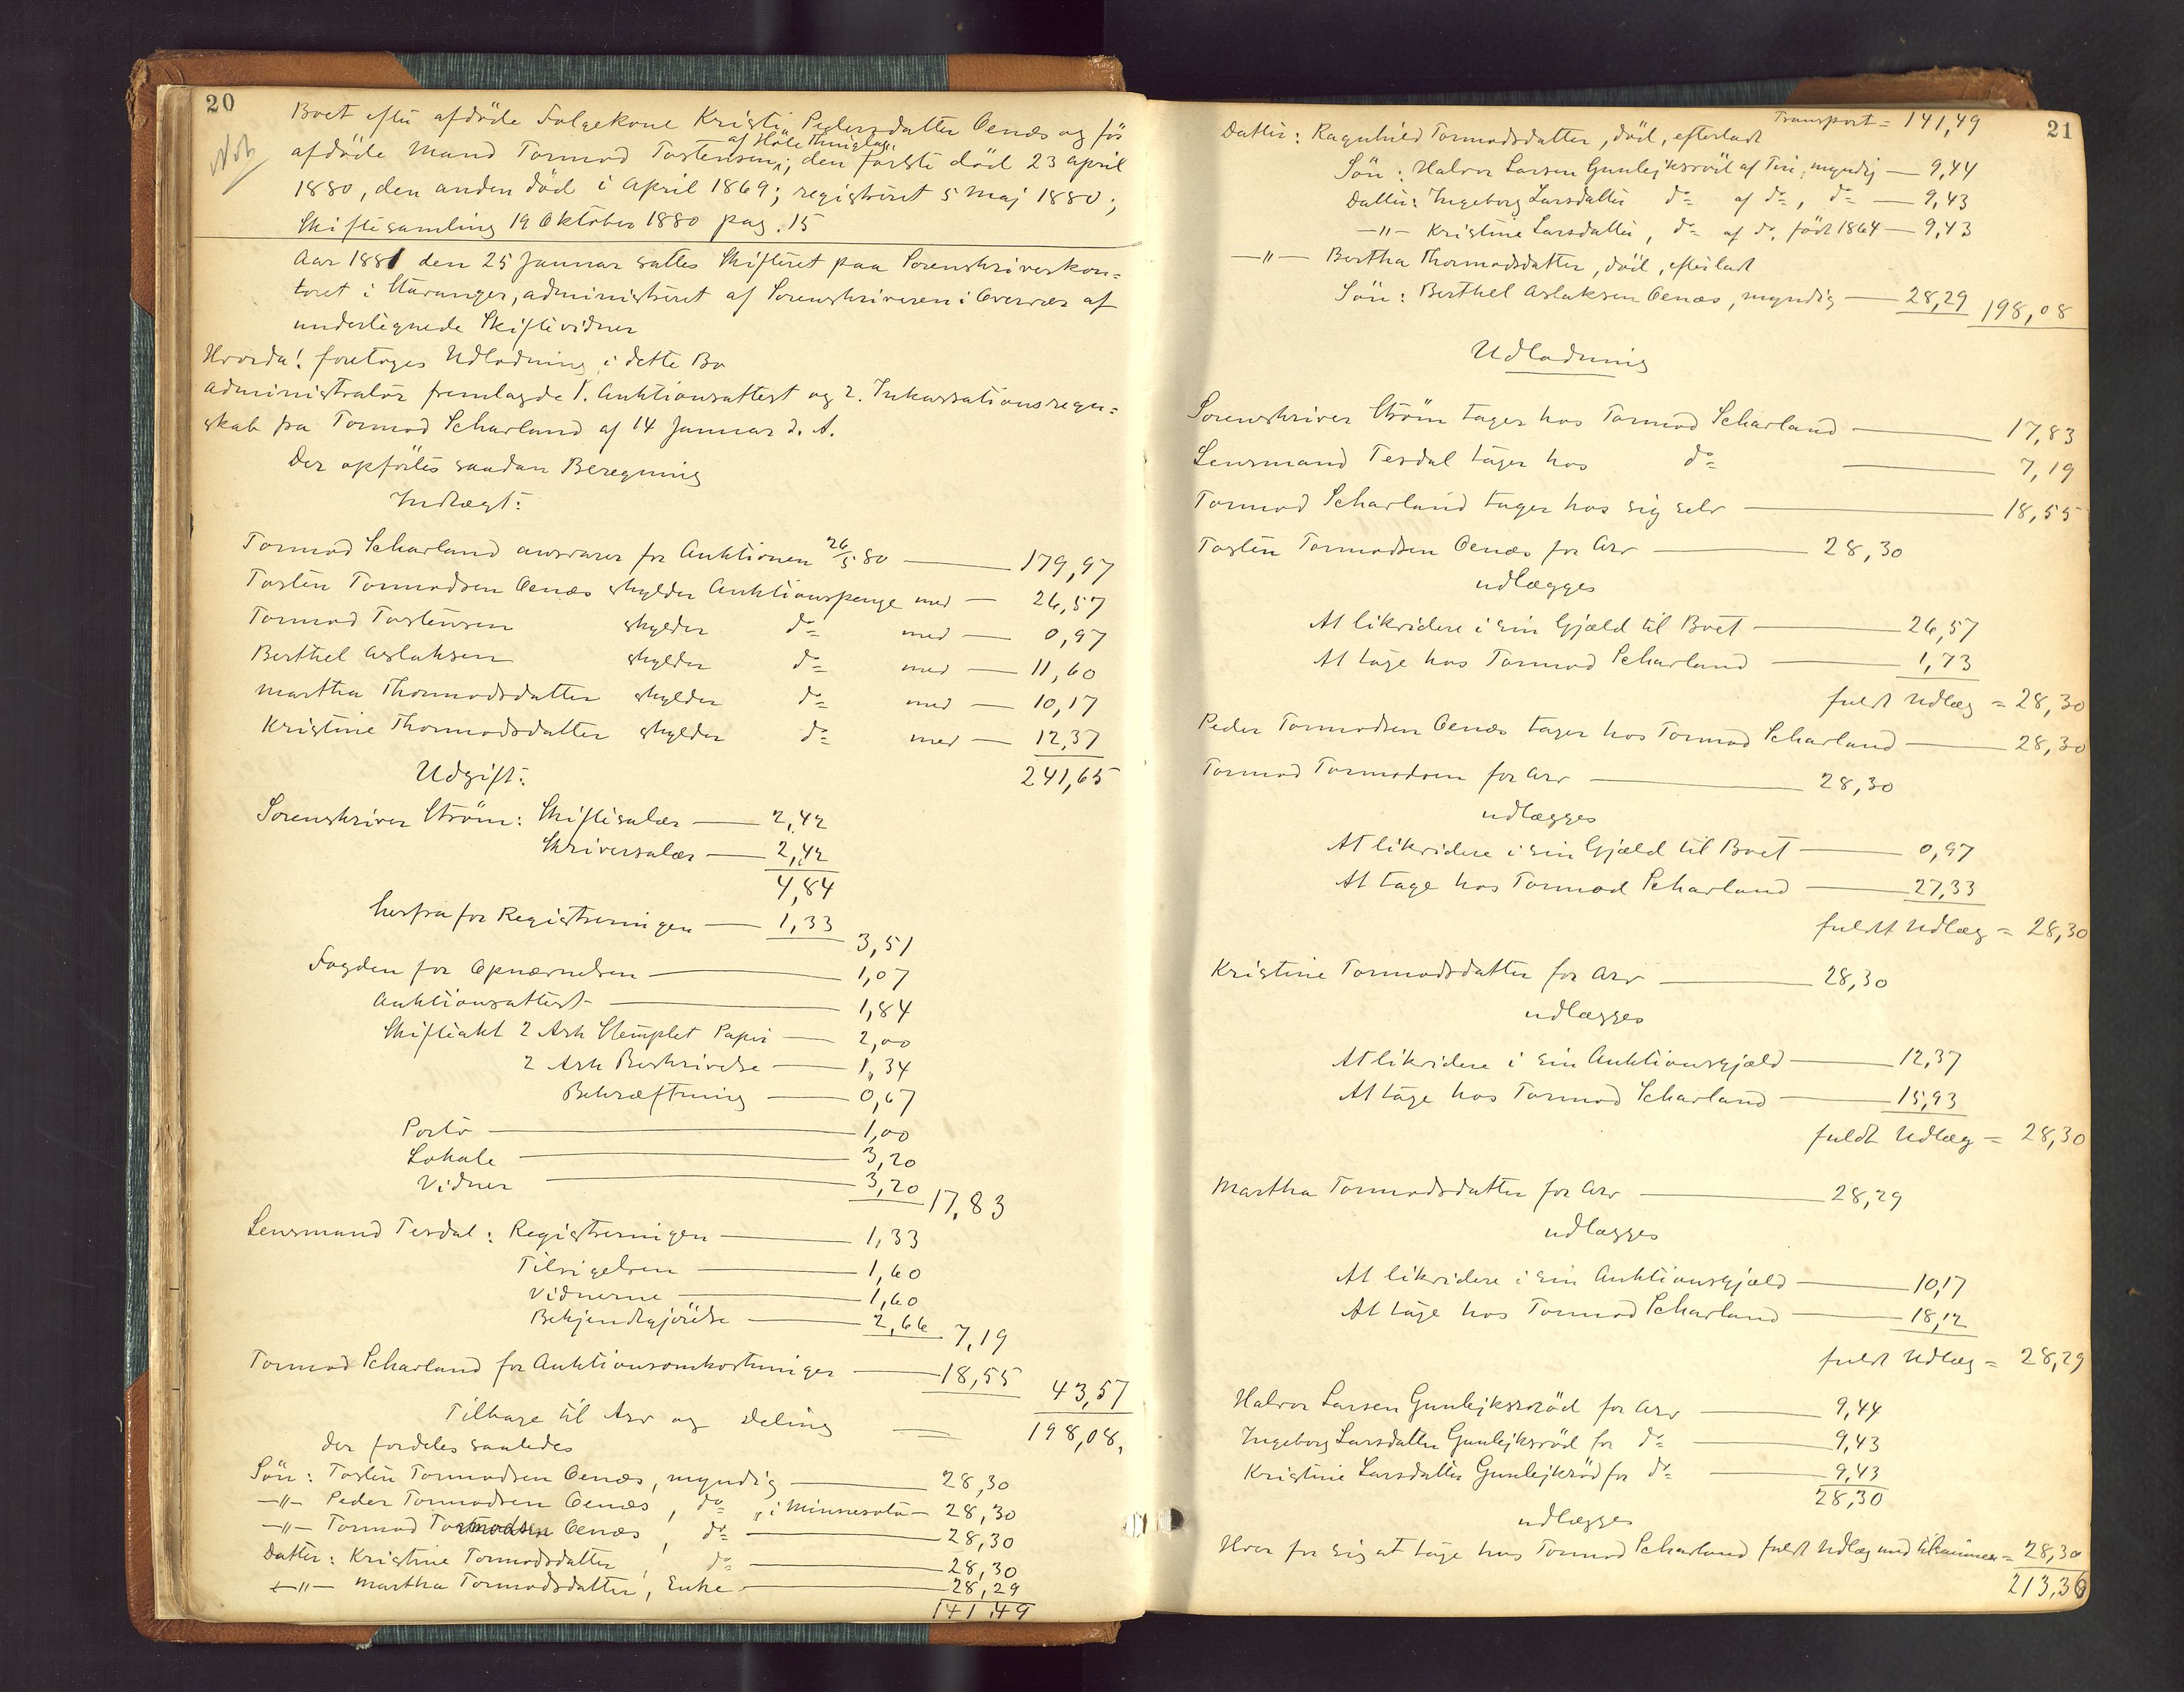 20
Boet efter afdöde Folgekone Kristi Pedersdatter Oenæs og før
af Höle Thinglag
afdöde Mand Tormod Tostensen; den første död 23 April
1880, den anden död i April 1869; registreret 5 Maj 1880;
Skiftesamling 19 Oktober 1880 pag. 15
Aar 1881 den 25 Januar sattes Skifteret paa Sorenskriverkon=
toret i Stavanger, administreret af Sorenskriveren i Overvær af
undertegnede Skiftevidner
Hvorda! foretoges Udlodning i dette Bo
Administrator fremlagde 1. Auktionsattest og 2. Inkassationsregn=
skab fra Tormod Scharland af 14 Januar d. A.
Der opførtes saadan Beregning
Indtægt:
Tormod Scharland ansvarer for Auktionen 26/5 80 — 179,97
Tosten Tormodsen Oenæs skylder Auktionspenge med — 26,57
Tormod Tostensen skylder do= med — 0,97
Berthel Aslaksen skylder do= med — 11,60
Martha Thormodsdatter skylder do= med — 10,17
Kristine Thormodsdatter skylder do= med — 12,37
241,65
Udgift:
Sorenskriver Ström: Skiftesalær — 2,42
Skriversalær — 2,42
4,84
herfra for Registreringen — 1,33
3,51
Fogden for Opnævnelsen — 1,07
Auktionsattest — 1,84
Skifteakt 2 Ark Stemplet Papir — 2,00
2 Ark Beskrivelse — 1,34
Bekræftning — 0,67
Porto — 1,00
Lokale — 3,20
Vidner — 3,20 17,83
Lensmand Tesdal: Registreringen — 1,33
Tilsigelsen — 1,60
Vidnerne — 1,60
Bekjendtgjörelse — 2,66 7,19
Tormod Scharland for Auktionsomkostninger — 18,55 43,57
Tilbage til Arv og Deling = 198,08,
der fordeles saaledes
Sön: Tosten Tormodsen Oenæs, myndig — 28,30
—"— Peder Tormodsen Oenæs, do= i Minnesota — 28,30
—"— Tormod Tormodsen Oenæs, do= — 28,30
Datter: Kristine Tormodsdatter, do= — 28,30
—"— Martha Tormodsdatter, Enke — 28,29
141,49
21
Transport = 141,49
Datter: Ragnhild Tormodsdatter, död, efterladt
Sön: Halvor Larsen Gunlejksröd af Tin, myndig — 9,44
Datter: Ingeborg Larsdatter do= af do=, do= — 9,43
—"— Kristine Larsdatter, do= af do, født 1864 — 9,43
—"— Bertha Thormodsdatter, död, efterladt
Sön: Berthel Aslaksen Oenæs, myndig — 28,29 198,08
Udlodning
Sorenskriver Ström tager hos Tormod Scharland — 17,83
Lensmand Tesdal tager hos do= — 7,19
Tormod Scharland tager hos sig selv — 18,55
Tosten Tormodsen Oenæs for Arv — 28,30
udlægges
At likvidere i sin Gjæld til Boet — 26,57
At tage hos Tormod Scharland — 1,73
fuldt Udlæg = 28,30
Peder Tormodsen Oenæs tager hos Tormod Scharland — 28,30
Tormod Tormodsen for Arv — 28,30
udlægges
At likvidere i sin Gjæld til Boet — 0,97
At tage hos Tormod Scharland — 27,33
fuldt Udlæg = 28,30
Kristine Tormodsdatter for Arv — 28,30
udlægges
At likvidere i sin Auktionsgjæld — 12,37
At tage hos Tormod Scharland — 15,93
fuldt Udlæg = 28,30
Martha Tormodsdatter for Arv — 28,29
udlægges
At likvidere i sin Auktionsgjæld — 10,17
At tage hos Tormod Scharland — 18,12
fuldt Udlæg = 28,29
Halvor Larsen Gunlejksröd for Arv — 9,44
Ingeborg Larsdatter Gunlejksröd for do= — 9,43
Kristine Larsdatter Gunlejksröd for do= — 9,43
28,30
udlægges
Hver for sig at tage hos Tormod Scharland fuldt Udlæg med tilsammen = 28,30
213,36